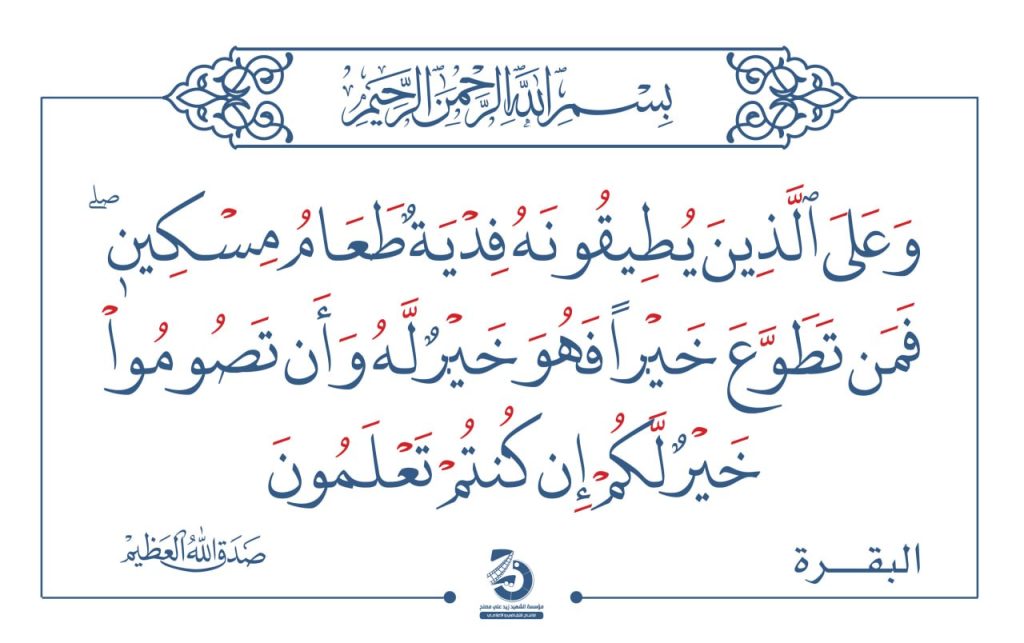 بِسْمِ اللَّهِ الرَّحْمَٰنِ الرَّحِيمِ
وَعَلَى ٱلَّذِينَ يُطِيقُونَهُ فِدْيَةٌ طَعَامُ مِسْكِينٍ ۖ
فَمَن تَطَوَّعَ خَيْراً فَهُوَ خَيْرٌ لَّهُ وَأَن تَصُومُواْ
خَيْرٌ لَّكُمْ إِن كُنتُمْ تَعْلَمُونَ
البقرة
صَدَقَ اللَّهُ العَظِيمْ
مؤسسة الشهيد زيد علي مصلح